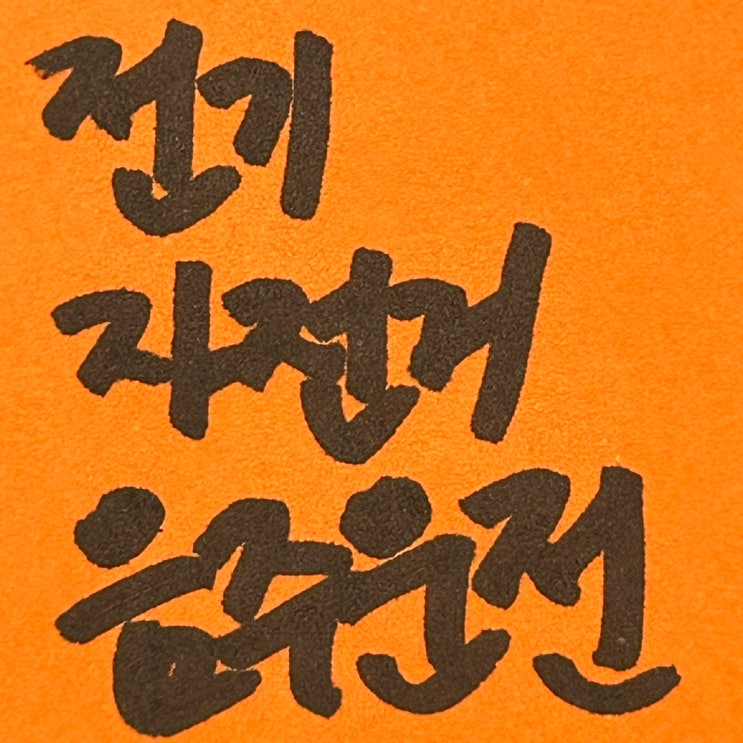 전기
자전거
음주운전